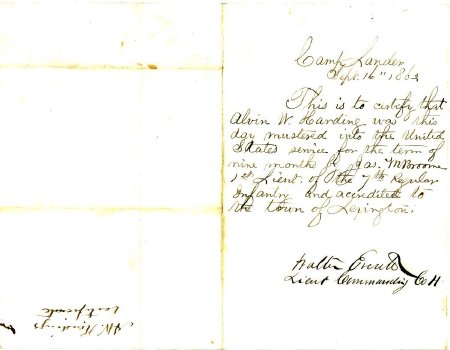 Camp Lander
Sept. 16" 1862
This is to certify that
Alvin W. Harding was this
day mustered into the United
States service for the term of
nine months by Jas. M. Broome
1st Lieut. of the 7th Regular
Infantry and accredited to
the town of Lexington.
Walter
Lieut Commanding Co H
A.W. Harding's
certificate